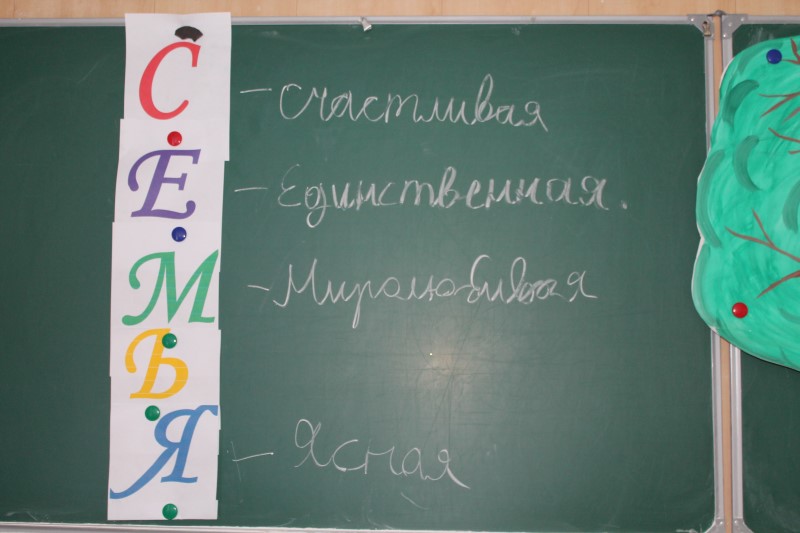 С - счастливая
Е - Единственная.
М - Миролюбивая
Ь
Я - Ясная